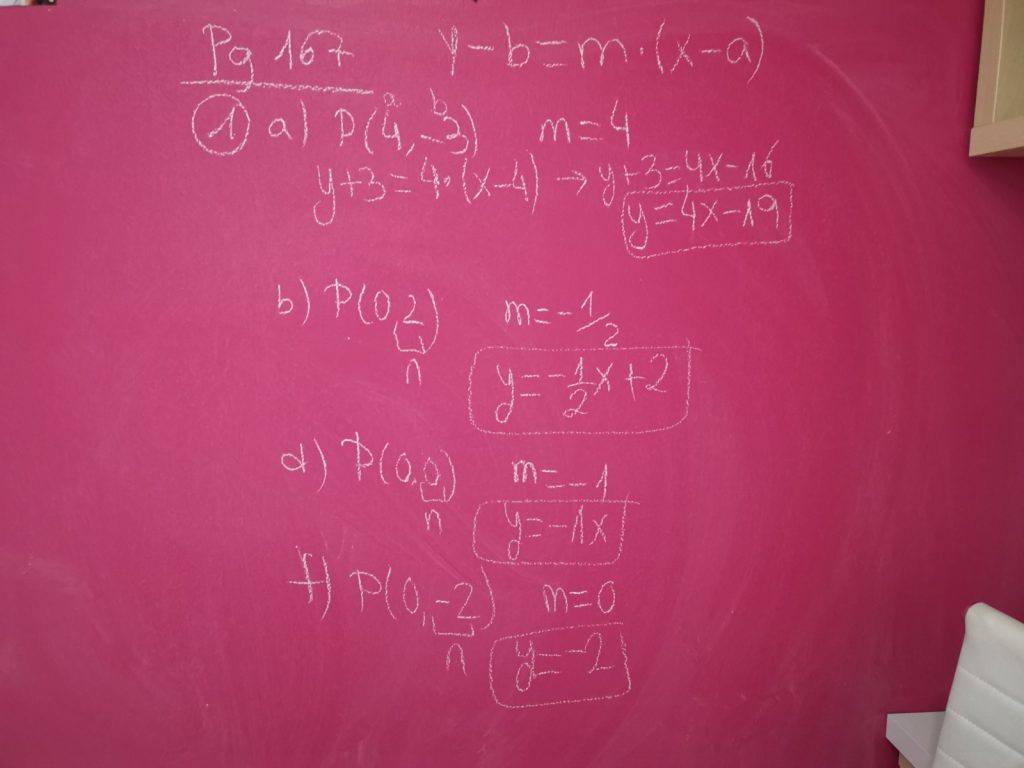 Pg 167 y-b=m·(x-a)
① a) P(4,-3) m=4
a b
y+3=4·(x-4) → y+3=4x-16
y=4x-19
b) P(0,2) m=-1/2
n
y=-1/2x+2
d) P(0,0) m=-1
n
y=-1x
f) P(0,-2) m=0
n
y=-2